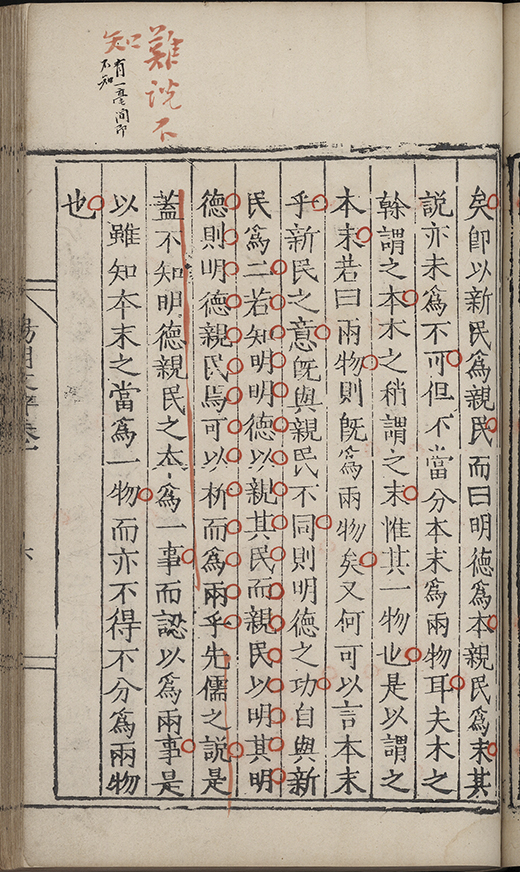 難說不
知
有一毫間卽
不知
矣卽以新民爲親民而曰明德爲本親民爲末其
說亦未爲不可但不當分本末爲兩物耳夫木之
榦謂之本木之稍謂之末惟其一物也是以謂之
本末若曰兩物則旣爲兩物矣又何可以言本末
乎新民之意旣與親民不同則明德之功自與新
民爲二若知明明德以親其民而親民以明其明
德則明德親民焉可以析而爲兩乎先儒之說是
蓋不知明德親民之本爲一事而認以爲兩事是
以雖知本末之當爲一物而亦不得不分爲兩物
也